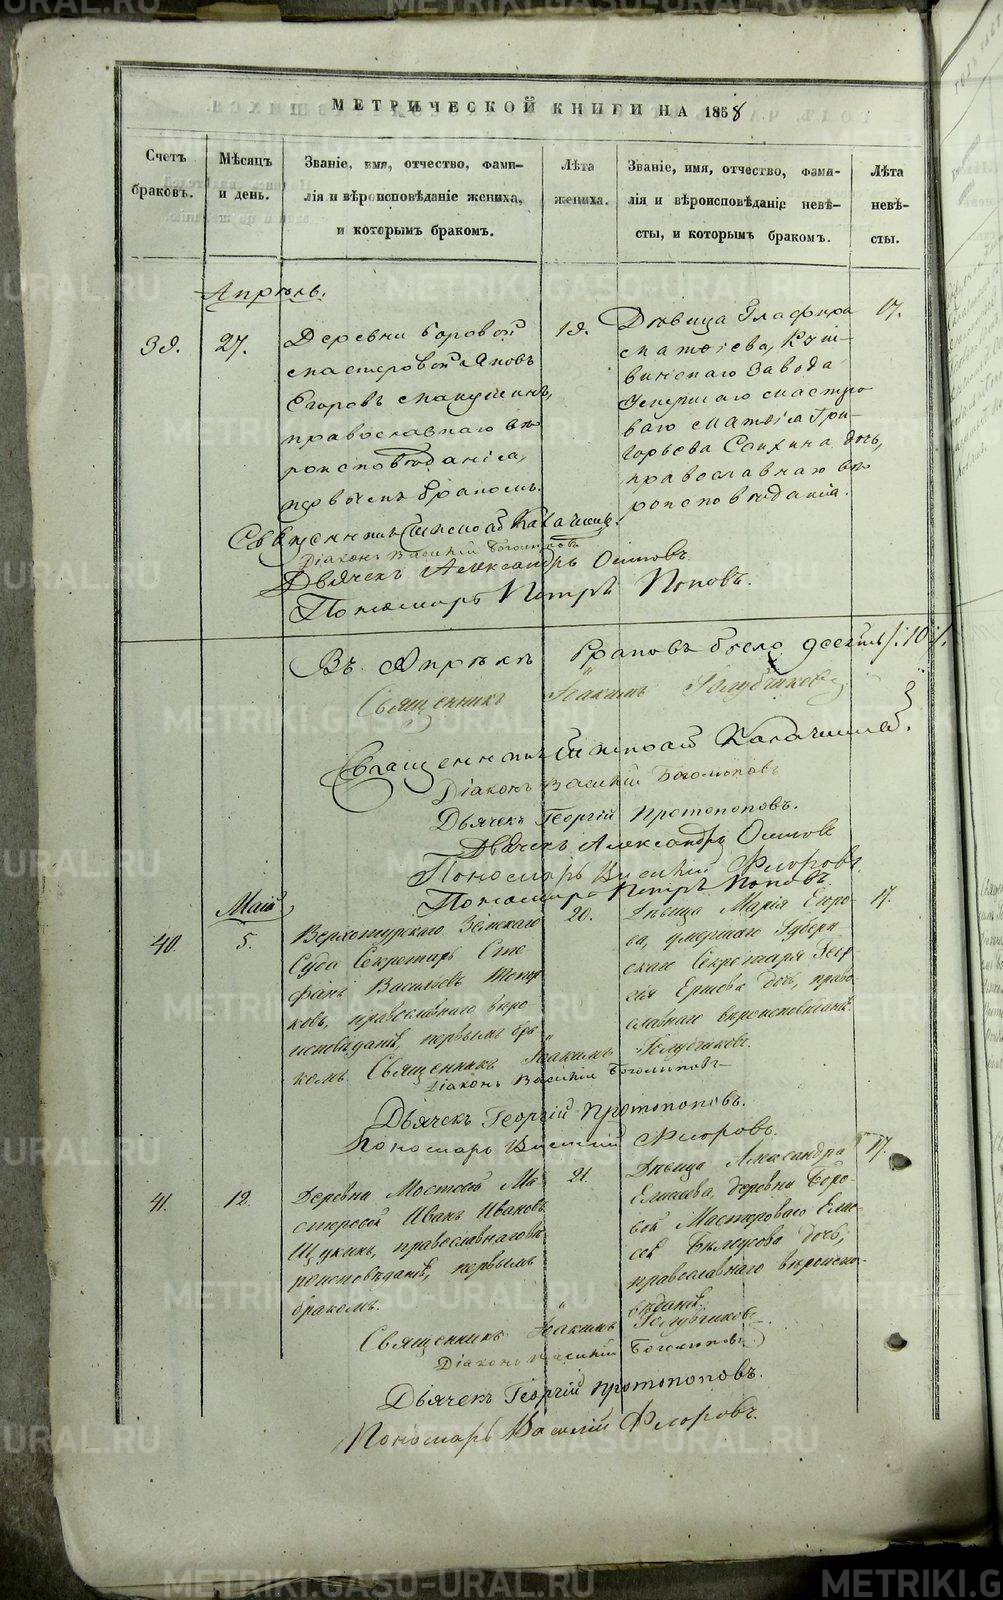 МЕТРИЧЕСКОЙ КНИГИ НА 1858
Счетъ браковъ.
Мѣсяцъ и день.
Званіе, имя, отчество, фами-
лія и вѣроисповѣданіе жениха,
и которымъ бракомъ.
Лѣта жениха.
Званіе, имя, отчество, фами-
лія и вѣроисповѣданіе невѣ-
сты, и которымъ бракомъ.
Лѣта невѣ-
сты.
Апрѣль.
39.
27.
Деревни Боровой
мастеровой Яковъ
Егоровъ
православнаго вѣ
роисповѣданія,
первымъ бракомъ.
19.
Дѣвица Глафира
Матѳіева, Куш-
винскаго Завода
умершаго мастеро
ваго Матѳія Гри-
горьева дочь,
православнаго вѣ
роисповѣданія.
17.
Священникъ
Діаконъ Василій Боголюповъ
Дьячекъ Александръ Осиповъ.
Пономарь Петръ Поповъ.
Въ Апрѣлѣ браковъ было десять /:10:/.
Священникъ Іоакимъ Голубчиковъ
Священникъ
Діаконъ Василій Боголюповъ
Дьячекъ Георгій Протопоповъ.
Дьячекъ Александръ Осиповъ
Пономарь Василій Флоровъ.
Пономарь Петръ Поповъ.
Май
40.
5.
Верхотурскаго Земскаго
Суда Секретарь Сте
фанъ Васильевъ Топор
ковъ, православнаго вѣро-
исповѣданія, первымъ бра
комъ.
20.
Дѣвица Марія Егоро-
ва, умершаго Губерн
скаго Секретаря Геор
гія Ершова дочь, право
славнаго вѣроисповѣданія.
17.
Священникъ Іоакимъ Голубчиковъ.
Діаконъ Василій Боголюповъ
Дьячекъ Георгій Протопоповъ.
Пономарь Василій Флоровъ.
41.
12.
Деревни Мостовой Ма
стеровой Иванъ Ивановъ
Щукинъ, православнаго вѣ
роисповѣданія, первымъ
бракомъ.
21.
Дѣвица Александра
Елисеева, деревни Боро-
вой Мастероваго Ели
сея дочь,
православнаго вѣроиспо-
вѣданія.
17.
Священникъ Іоакимъ Голубчиковъ.
Діаконъ Василій Боголюповъ
Дьячекъ Георгій Протопоповъ.
Пономарь Василій Флоровъ.
METRIKI.GASO-URAL.RU